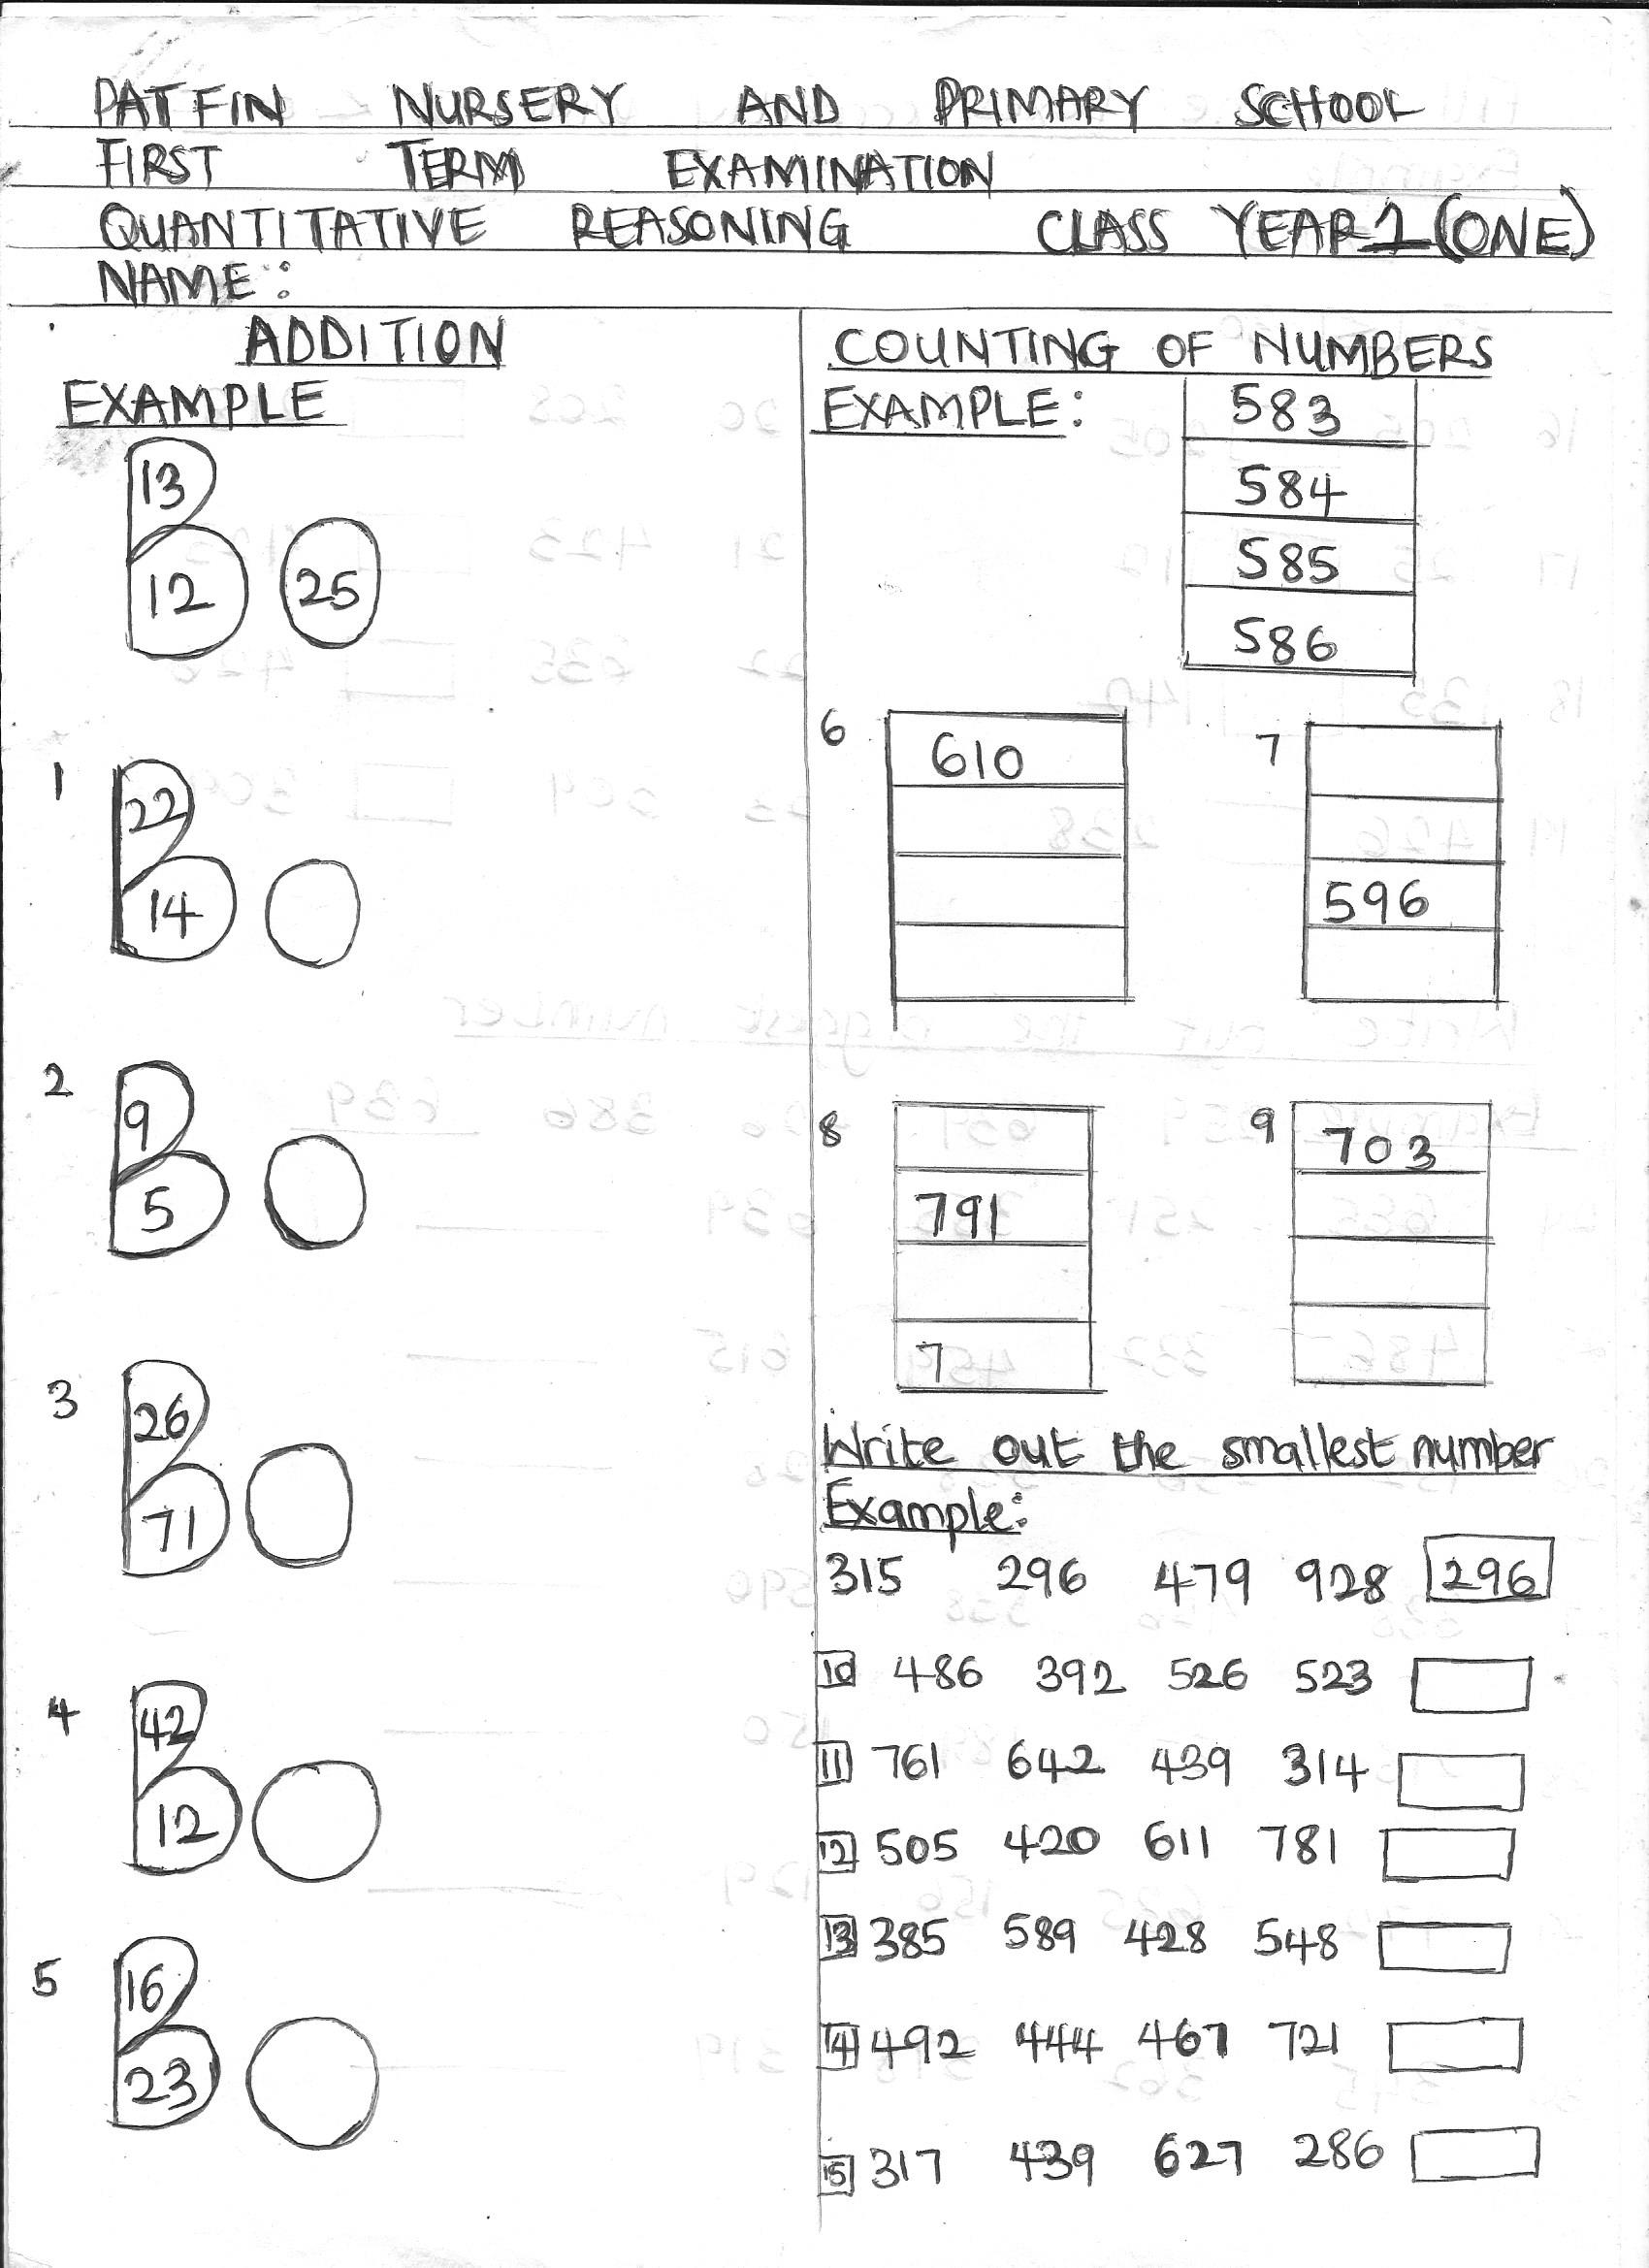 PATFIN NURSERY AND PRIMARY SCHOOL
FIRST TERM EXAMINATION
QUANTITATIVE REASONING CLASS YEAR 1 (ONE)
NAME:
ADDITION
EXAMPLE
13
12 25
1
22
14
2
9
5
3
26
71
4
42
12
5
16
23
COUNTING OF NUMBERS
EXAMPLE:
583
584
585
586
6
610
7
596
8
791
7
9
703
Write out the smallest number
Example:
315 296 479 928 296
10 486 392 526 523
11 761 642 439 314
12 505 420 611 781
13 385 589 428 548
14 492 444 467 721
15 317 439 627 286